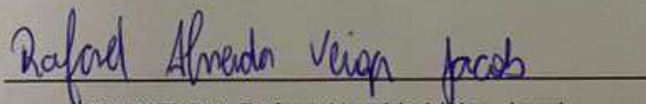 Rafael Almeida Veiga Jacob